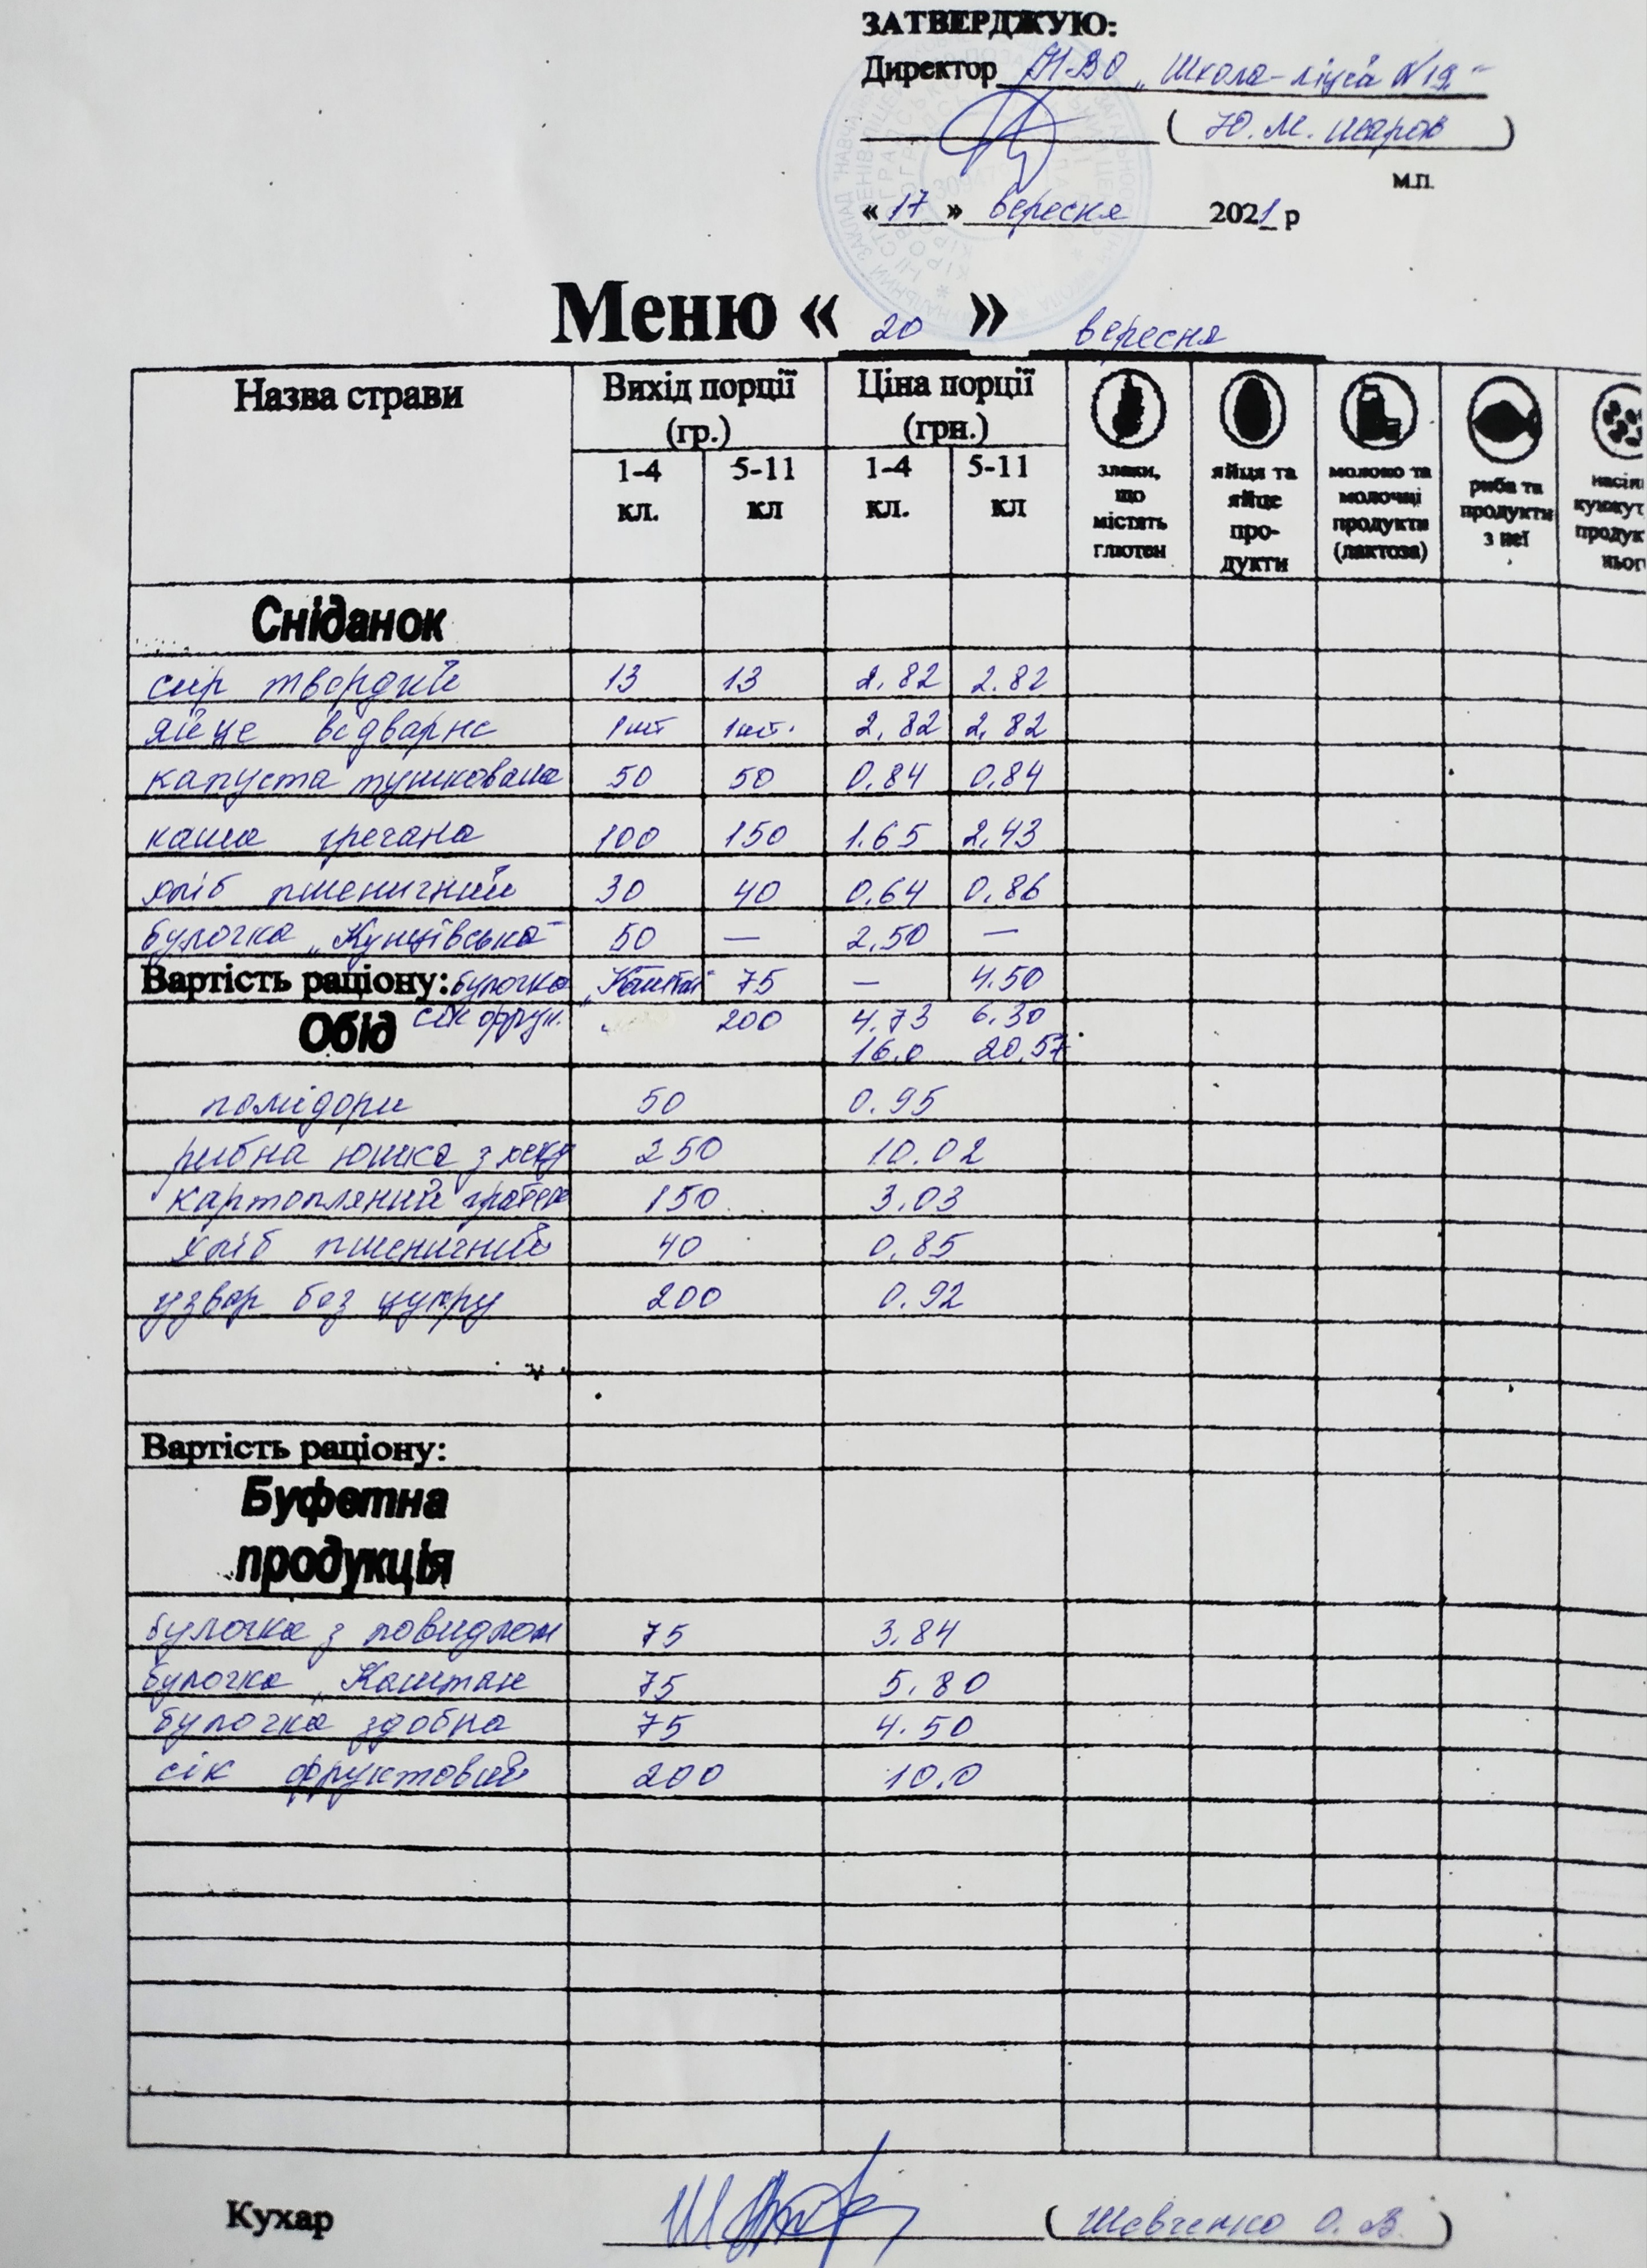 ЗАТВЕРДЖУЮ:
Директор НВО „Школа-ліцей №19"
(Ю.М. Шаров)
М.П.
«17» вересня 2021 р
Меню «20» вересня
Назва страви Вихід порції (гр.) Ціна порції (грн.)
1-4 кл. 5-11 кл 1-4 кл. 5-11 кл
злаки, що містять глютен
яйця та яйце про-дукти
молоко та молочні продукти (лактоза)
риба та продукти з неї
насін кунжут продук ньог
Сніданок
сир твердий 13 13 2.82 2.82
яйце відварне 1шт 1шт. 2,82 2,82
капуста тушкована 50 50 0.84 0,84
каша гречана 100 150 1.65 2,43
хліб пшеничний 30 40 0.64 0.86
булочка „Кунцівська" 50 — 2,50 —
Вартість раціону: булочка „Каштан" 75 — 4.50
Обід сік фрук. 200 4.73 6.30
16.0 20.57
помідори 50 0.95
рибна юшка з 250 10.02
картопляний 150 3.03
хліб пшеничний 40 0.85
узвар без цукру 200 0.92
Вартість раціону:
Буфетна
продукція
булочка з повидлом 75 3.84
булочка „Каштан 75 5.80
булочка здобна 75 4.50
сік фруктовий 200 10.0
Кухар (Шевченко О.В.)